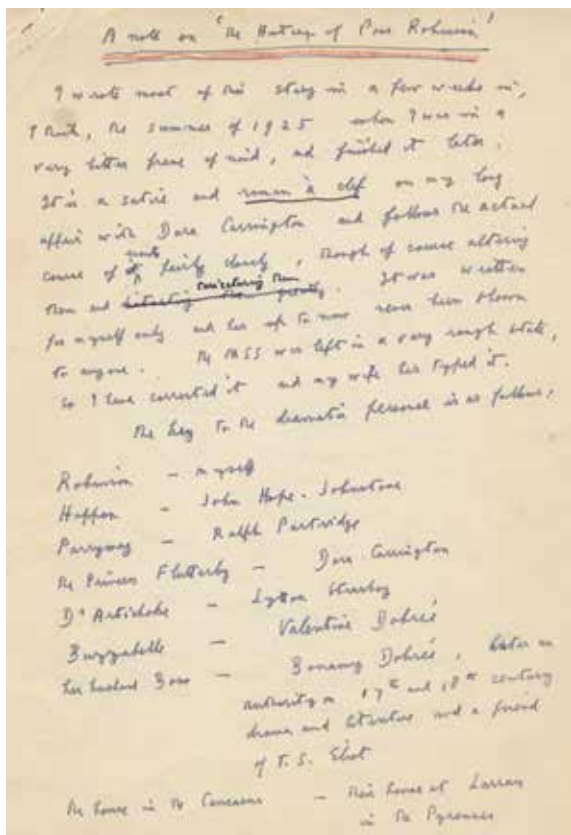 A note on 'The History of Poor Robinson'
I wrote most of this story in a few weeks in,
I think, the summer of 1925 when I was in a
very bitter frame of mind, and finished it later.
It is a satire and roman à clef on my long
affair with Dora Carrington and follows the actual
course of events fairly closely, though of course altering
them and caricaturing them. It was written
for myself only and has up to now never been shown
to anyone. The MSS was left in a very rough state,
so I have corrected it and my wife has typed it.
The key to the dramatis personae is as follows.
Robinson – myself
Happen – John Hope-Johnstone
Parryway – Ralph Partridge
The Princess Flutterby – Dora Carrington
D'Artichoke – Lytton Strachey
Buzzabelle – Valentine Dobrée
her husband Boso – Bonamy Dobrée, later an
authority on 17th and 18th century
drama and literature and a friend
of T. S. Eliot
The house in the Caucasus – their house at Larrau
in the Pyrenees